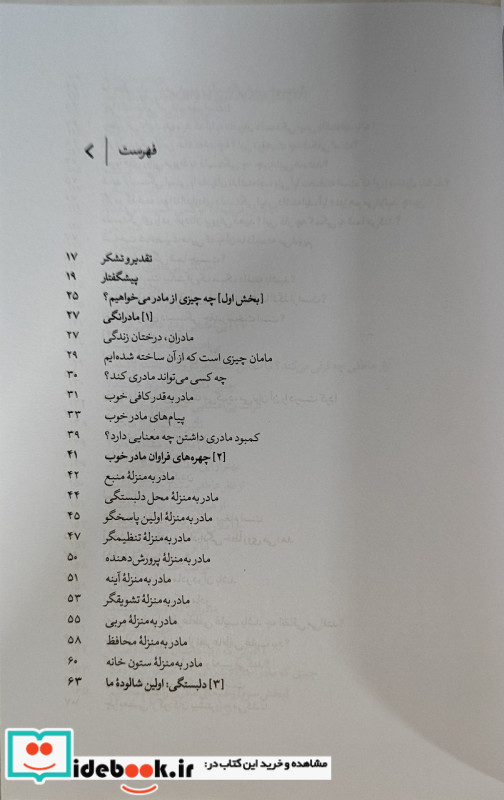 فهرست
تقدیر و تشکر ۱۷
پیشگفتار ۱۹
[بخش اول] چه چیزی از مادر می‌خواهیم؟ ۲۵
[۱] مادرانگی ۲۷
مادران، درختان زندگی ۲۷
مامان چیزی است که از آن ساخته شده‌ایم ۲۹
چه کسی می‌تواند مادری کند؟ ۳۰
مادر به‌قدر کافی خوب ۳۱
پیام‌های مادر خوب ۳۳
کمبود مادری داشتن چه معنایی دارد؟ ۳۹
[۲] چهره‌های فراوان مادر خوب ۴۱
مادر به‌منزلهٔ منبع ۴۲
مادر به‌منزلهٔ محل دلبستگی ۴۴
مادر به‌منزلهٔ اولین پاسخگو ۴۵
مادر به‌منزلهٔ تنظیمگر ۴۷
مادر به‌منزلهٔ پرورش‌دهنده ۵۰
مادر به‌منزلهٔ آینه ۵۱
مادر به‌منزلهٔ تشویقگر ۵۳
مادر به‌منزلهٔ مربی ۵۵
مادر به‌منزلهٔ محافظ ۵۸
مادر به‌منزلهٔ ستون خانه ۶۰
[۳] دلبستگی: اولین شالودهٔ ما ۶۳
مشاهده و خرید این کتاب در:
idebook.ir